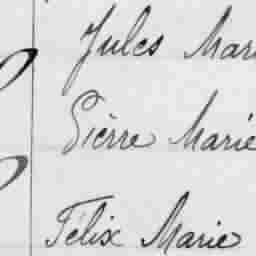 Jules Mari
Pierre Marie
Félix Marie